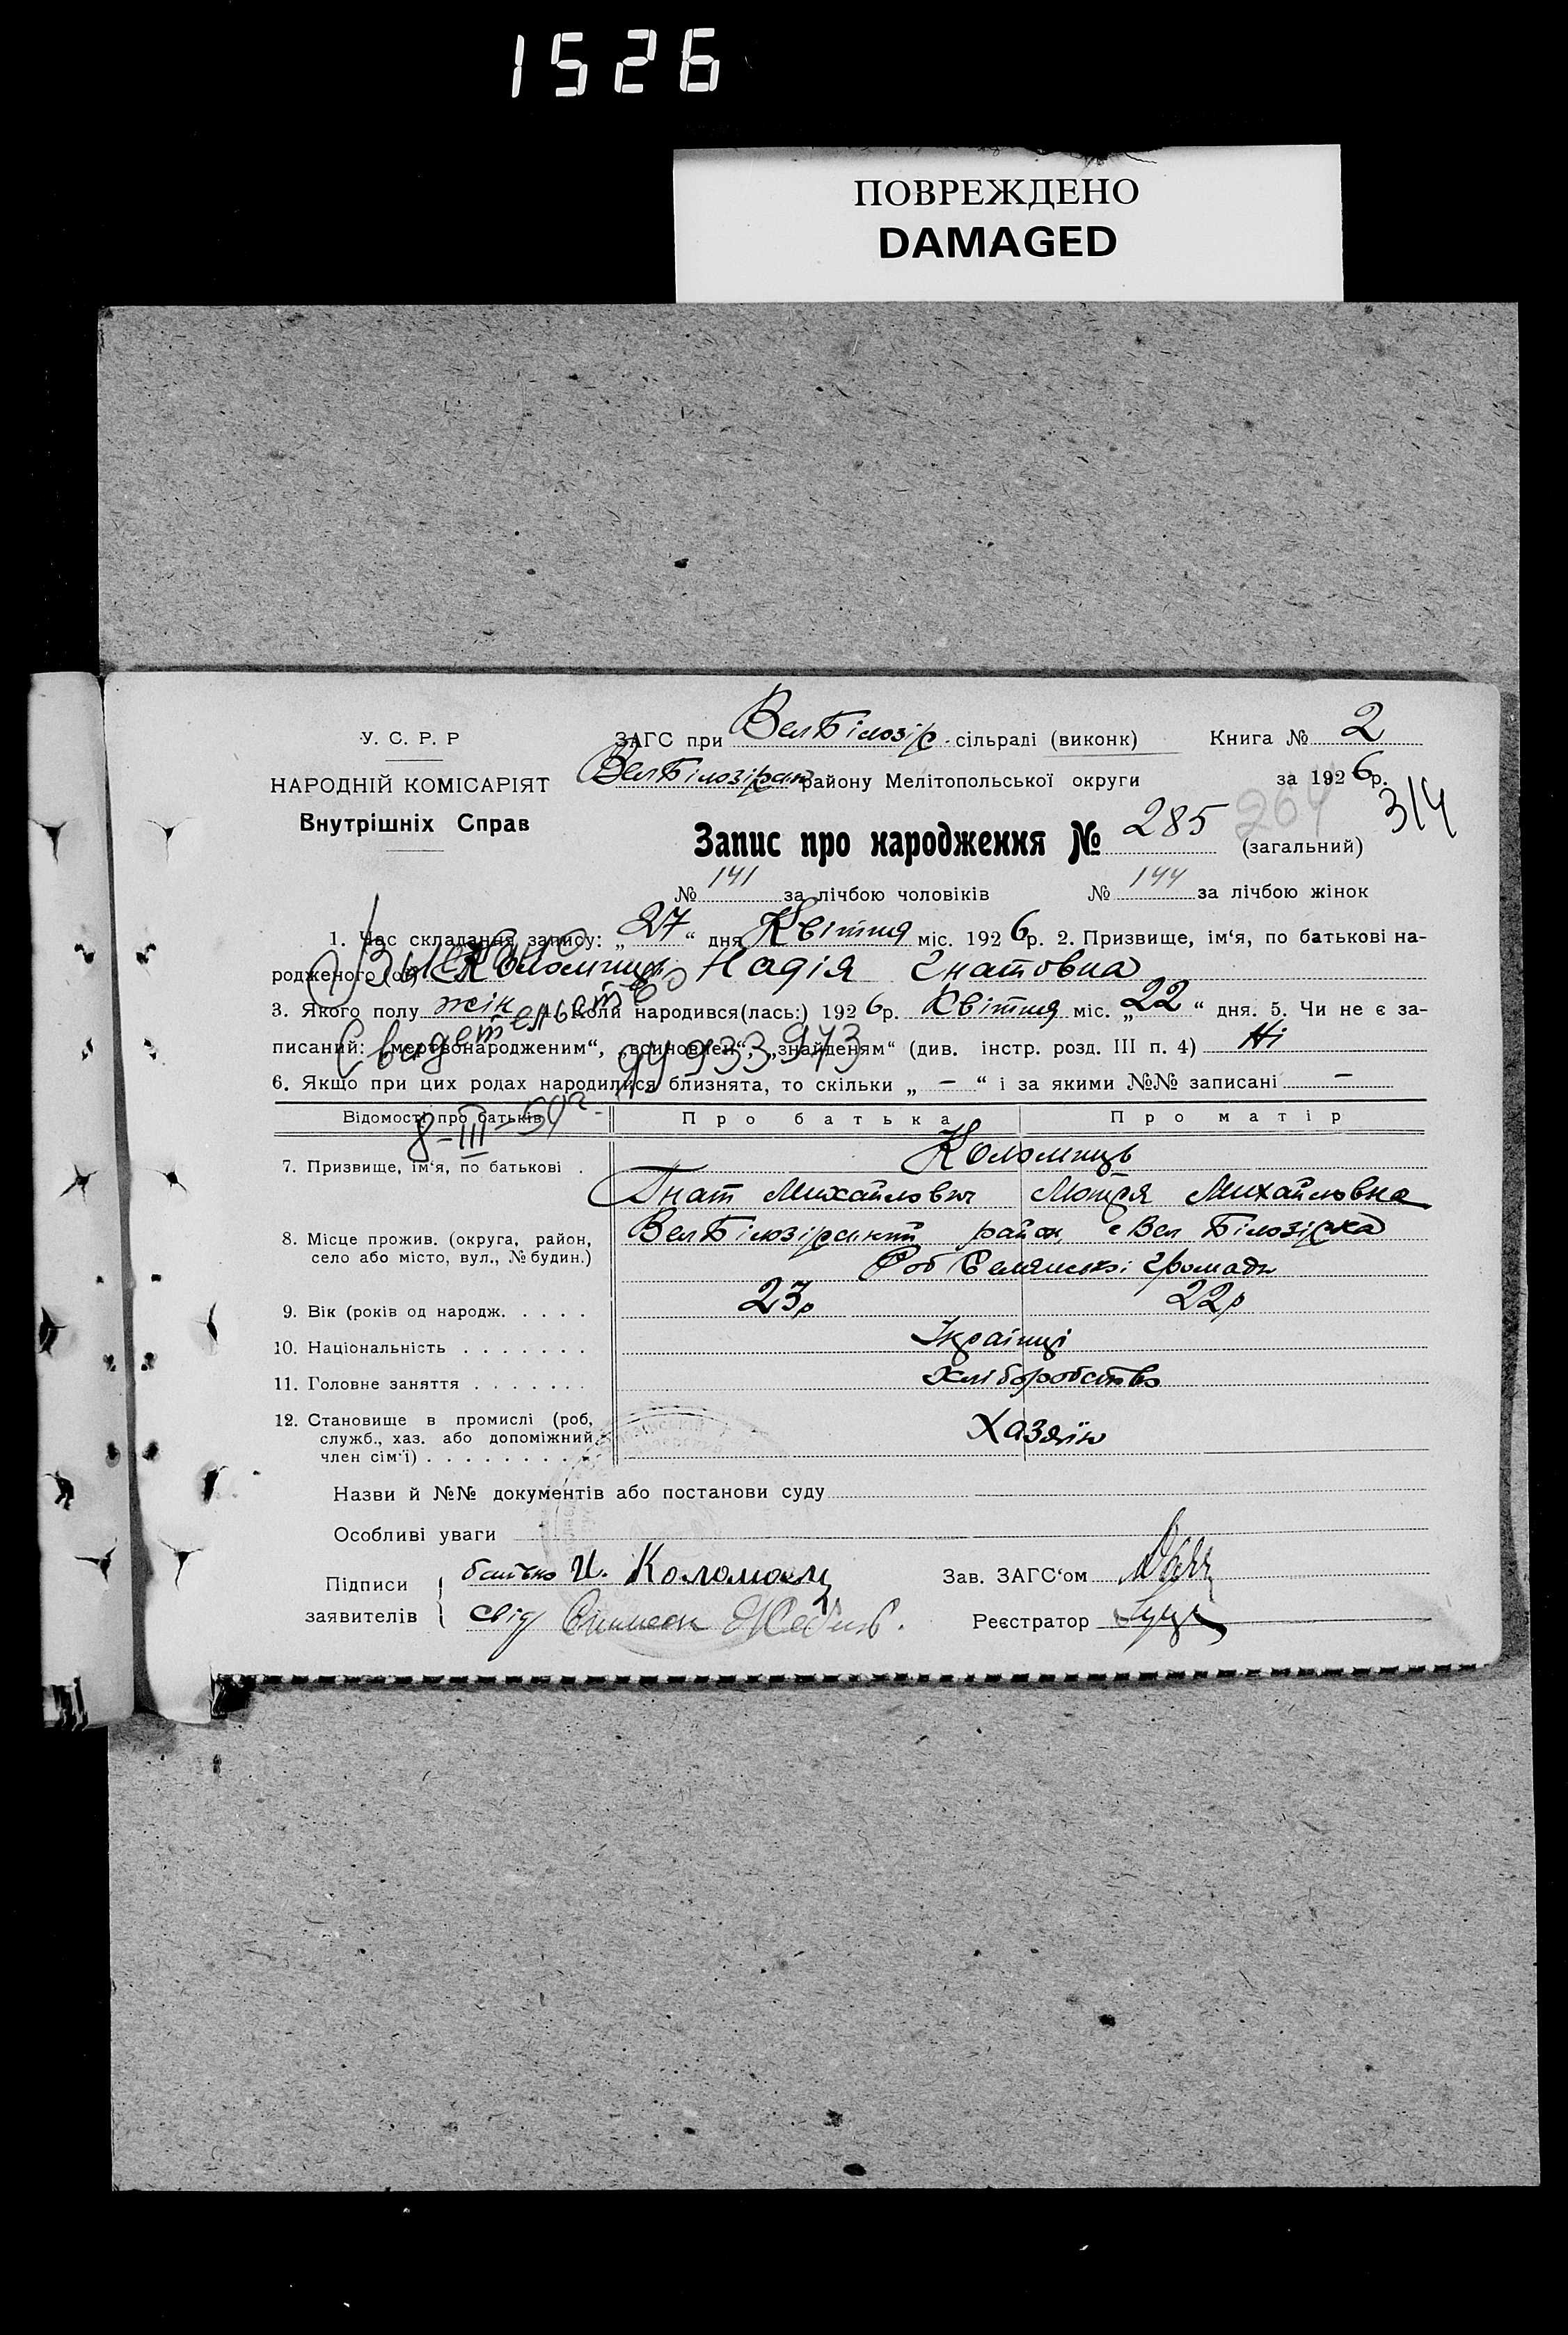 1526
ПОВРЕЖДЕНО
DAMAGED
У. С. Р. Р
НАРОДНІЙ КОМІСАРІЯТ
Внутрішніх Справ
ЗАГС при ВелБілозір. сільраді (виконк)
ВелБілозірськ району Мелітопольської округи
Книга № 2
за 1926р.
314
Запис про народження № 285 264 (загальний)
№ 141 за лічбою чоловіків № 144 за лічбою жінок
1. Час складання запису: „27“ дня Квітня міс. 1926р. 2. Призвище, ім‘я, по батькові на-
родженого (ої) Коломиць Надія Гнатовна
3. Якого полу жін 4. Коли народився(лась:) 1926р. Квітня міс. „22“ дня. 5. Чи не є за-
писаний: „мертвонародженим“, „знайденям“ (див. інстр. розд. III п. 4) Ні
6. Якщо при цих родах народилися близнята, то скільки „ – “ і за якими №№ записані –
Свидетельство
933973
8-III-
Відомості про батьків Про батька Про матір
7. Призвище, ім‘я, по батькові . Коломиць
Гнат Михайлович Мотря Михайловна
8. Місце прожив. (округа, район, село або місто, вул., № будин.) ВелБілозірський район с Вел Білозірка
Громади
9. Вік (років од народж. . . . . 23р 22р
10. Національність . . . . . . . Українці
11. Головне заняття . . . . . . . Хліборобство
12. Становище в промислі (роб, служб., хаз. або допоміжний член сім‘ї) . . . . . . . . . Хазяїн
Назви й №№ документів або постанови суду
Особливі уваги
Підписи заявителів батько И. Коломоец
свід
Зав. ЗАГС‘ом
Реєстратор